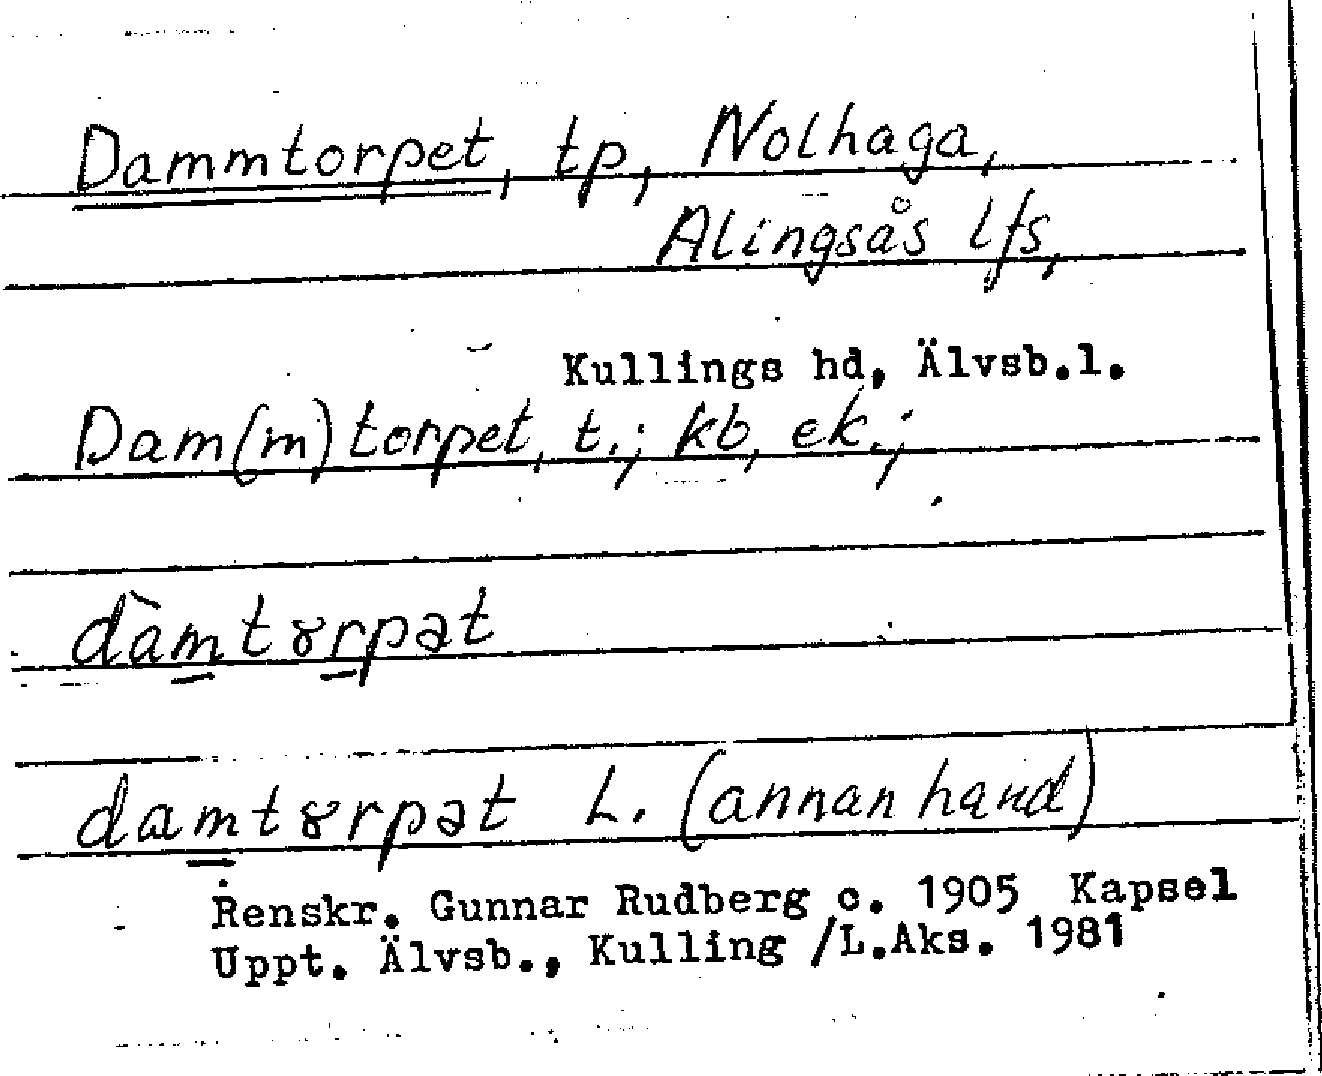 Dammtorpet, tp, Nolhaga,
Alingsås lfs,
Kullings hd, Älvsb.l.
Dam(m)torpet, t.; kb, ek.;
dàmtȣrpət
damtȣrpət L. (annan hand)
Renskr. Gunnar Rudberg c. 1905 Kapsel
Uppt. Älvsb., Kulling /L.Aks. 1981